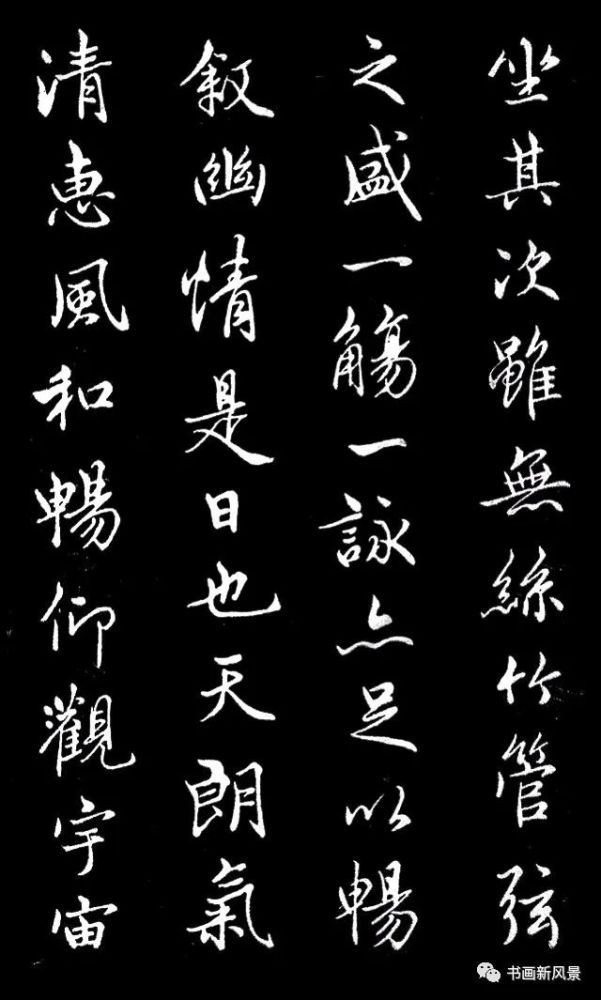 坐其次雖無絲竹管弦
之盛一觴一詠亦足以暢
敘幽情是日也天朗氣
清惠風和暢仰觀宇宙
书画新风景